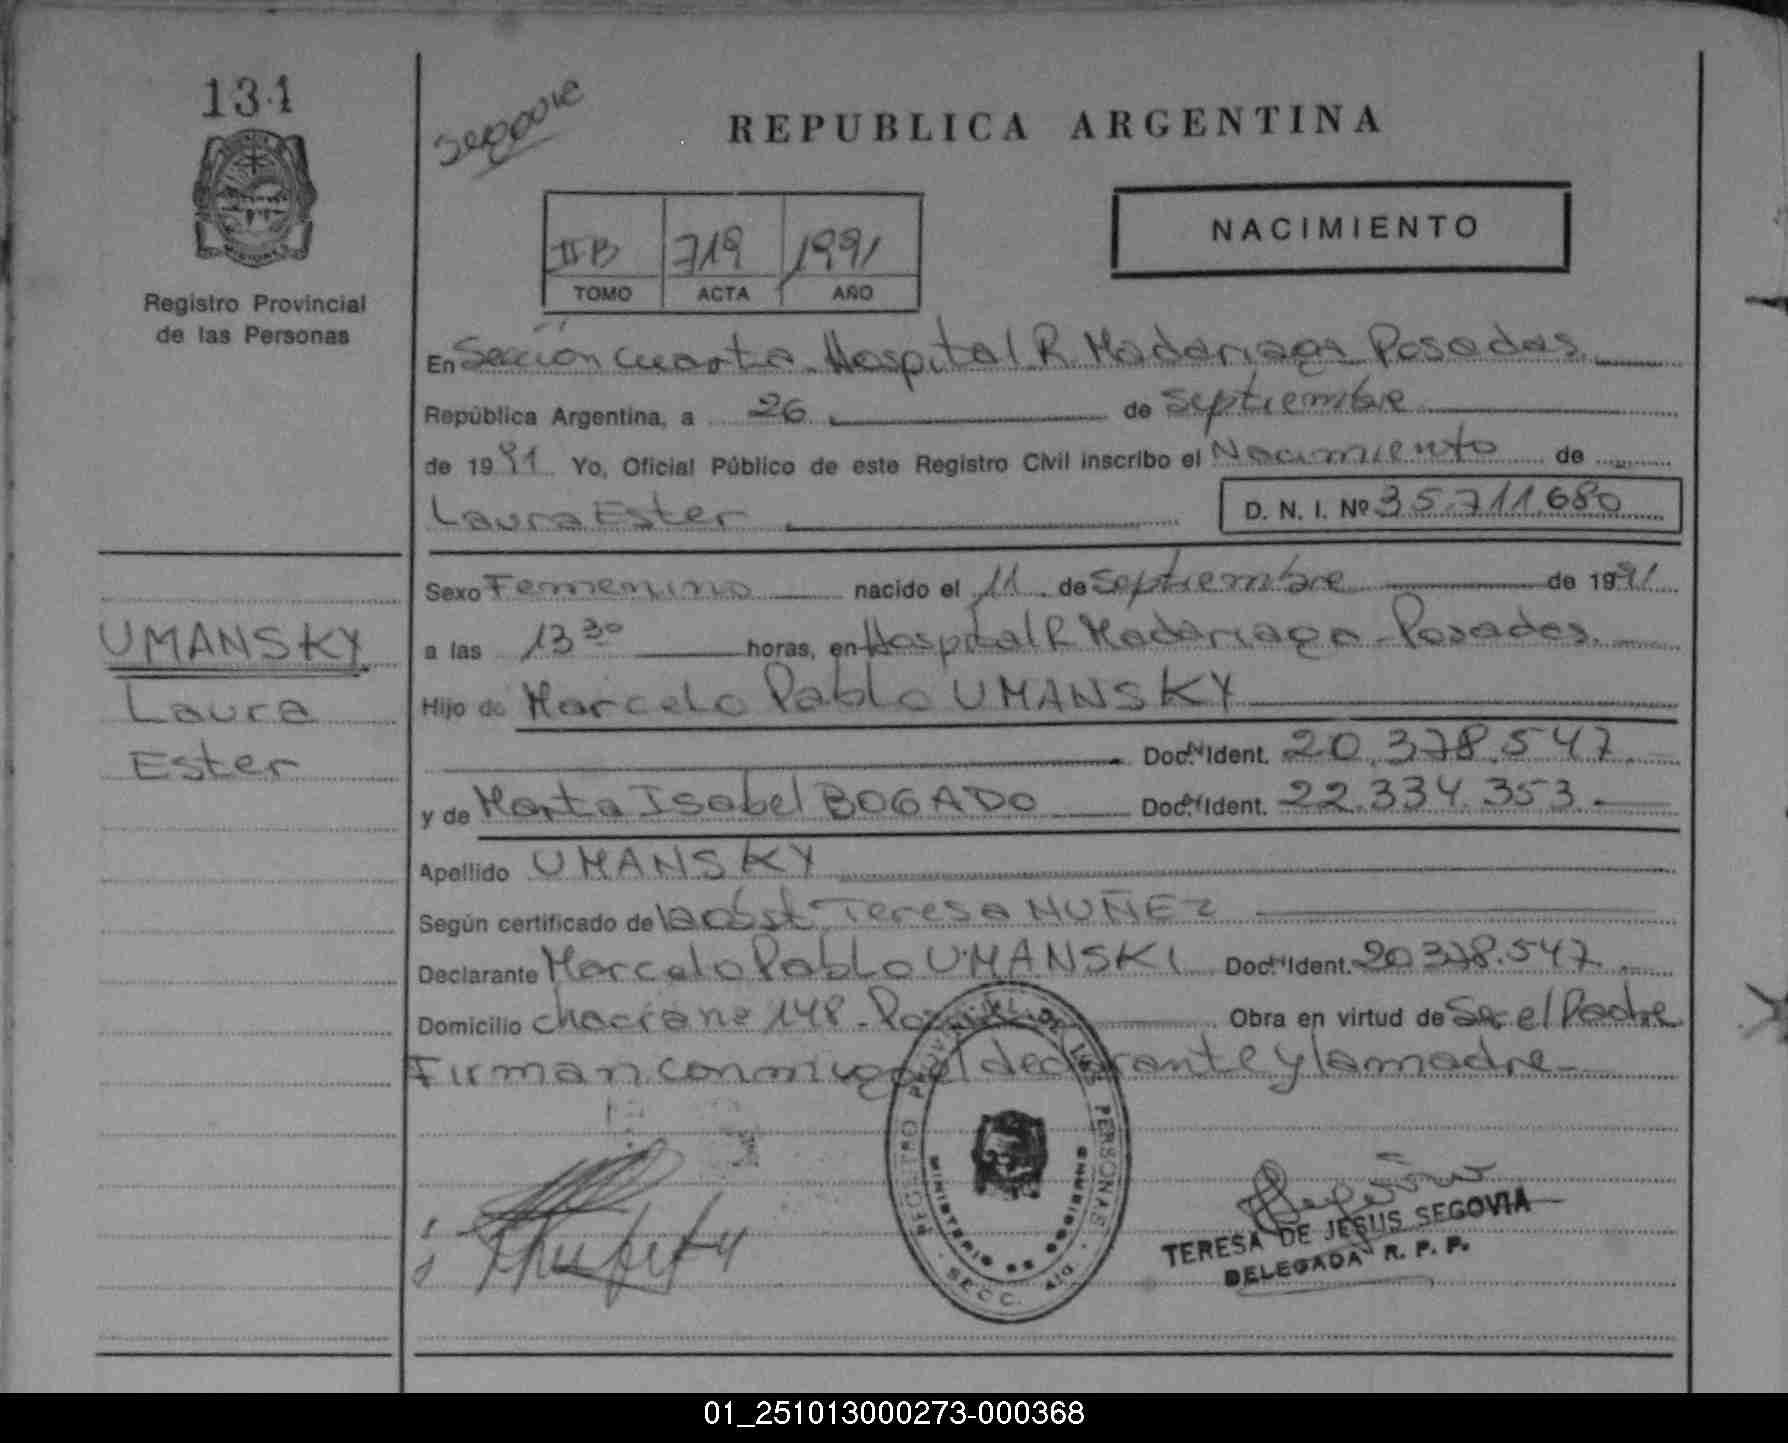 131
Registro Provincial
de las Personas
UMANSKY
Laura
Ester
REPUBLICA ARGENTINA
IIB 719 1991
TOMO ACTA AÑO
NACIMIENTO
En Sección cuarta Hospital R Madariaga Posadas
República Argentina, a 26 de septiembre
de 1991 Yo, Oficial Público de este Registro Civil inscribo el Nacimiento de
Laura Ester D. N. I. Nº 35.711.680
Sexo Femenino nacido el 11 de septiembre de 1991
a las 13 30 horas, en Hospital R Madariaga - Posadas.
Hijo de Marcelo Pablo UMANSKY
Doc. Ident. 20.378.547
y de Marta Isabel BOGADO Doc. Ident. 22.334.353
Apellido UMANSKY
Según certificado de la obst. Teresa NUÑEZ
Declarante Marcelo Pablo UMANSKI Doc. Ident. 20.378.547
Domicilio chacra nº 148 - Obra en virtud de Ser el Padre
Firman conmigo el declarante y la madre
REGISTRO PROVINCIAL DE LAS PERSONAS
MINISTERIO DE GOBIERNO
SECC. 4ta
TERESA DE JESUS SEGOVIA
DELEGADA R. P. P.
01_251013000273-000368